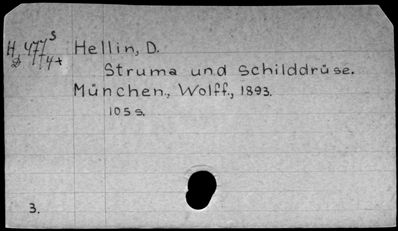 Hellin, D.
Struma und Schilddrüse.
München., Wolff., 1893.
105 s.
3.